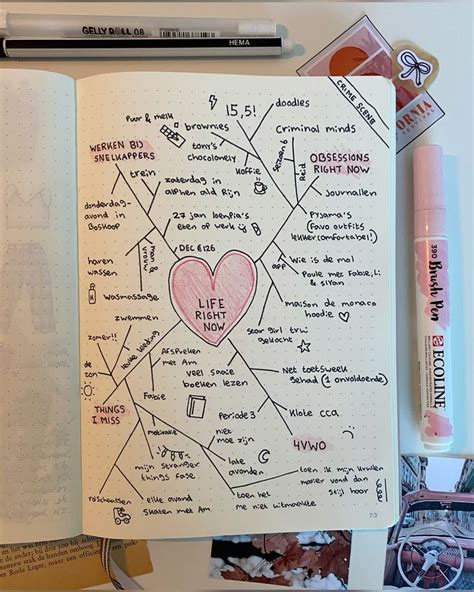 GELLY ROLL 08
HEMA
CRIME SCENE
15,5!
doodles
puur & melk
brownies
Criminal minds
tony's
chocolonely
koffie
Seizoen 6
Reid
WERKEN BIJ
SNELKAPPERS
OBSESSIONS
RIGHT NOW
trein
zaterdag in
alphen ald Rijn
Journallen
donderdag-
avond in
Boskoop
27 jan loempia's
eten op werk
Pyjama's
(Favo outfits
lekker comfortabel!)
DEC &
man &
vrouw
haren
wassen
app
Wie is de mol
Poule met Fabie, Li
&
Wasmassage
maison de monaco
hoodie
LIFE
RIGHT
NOW
zwemmen
zomer!!
leuke kleding
star girl trui
gekocht
Afspreken
met Am
de
zon
veel saaie
boeken lezen
Net toetsweek
gehad (1 onvoldoende)
THINGS
I MISS
Fabie
Periode 3
Klote cca
4VWO
motivatie
niet
moe zijn
mijn stranger
things fase
late
avonden
toen ik mijn krullen
manier vond dan
stijl haar
rolschaatsen
elke avond
skaten met Am
toen het
me niet uitmaakte
73
390 Brush Pen
ECOLINE